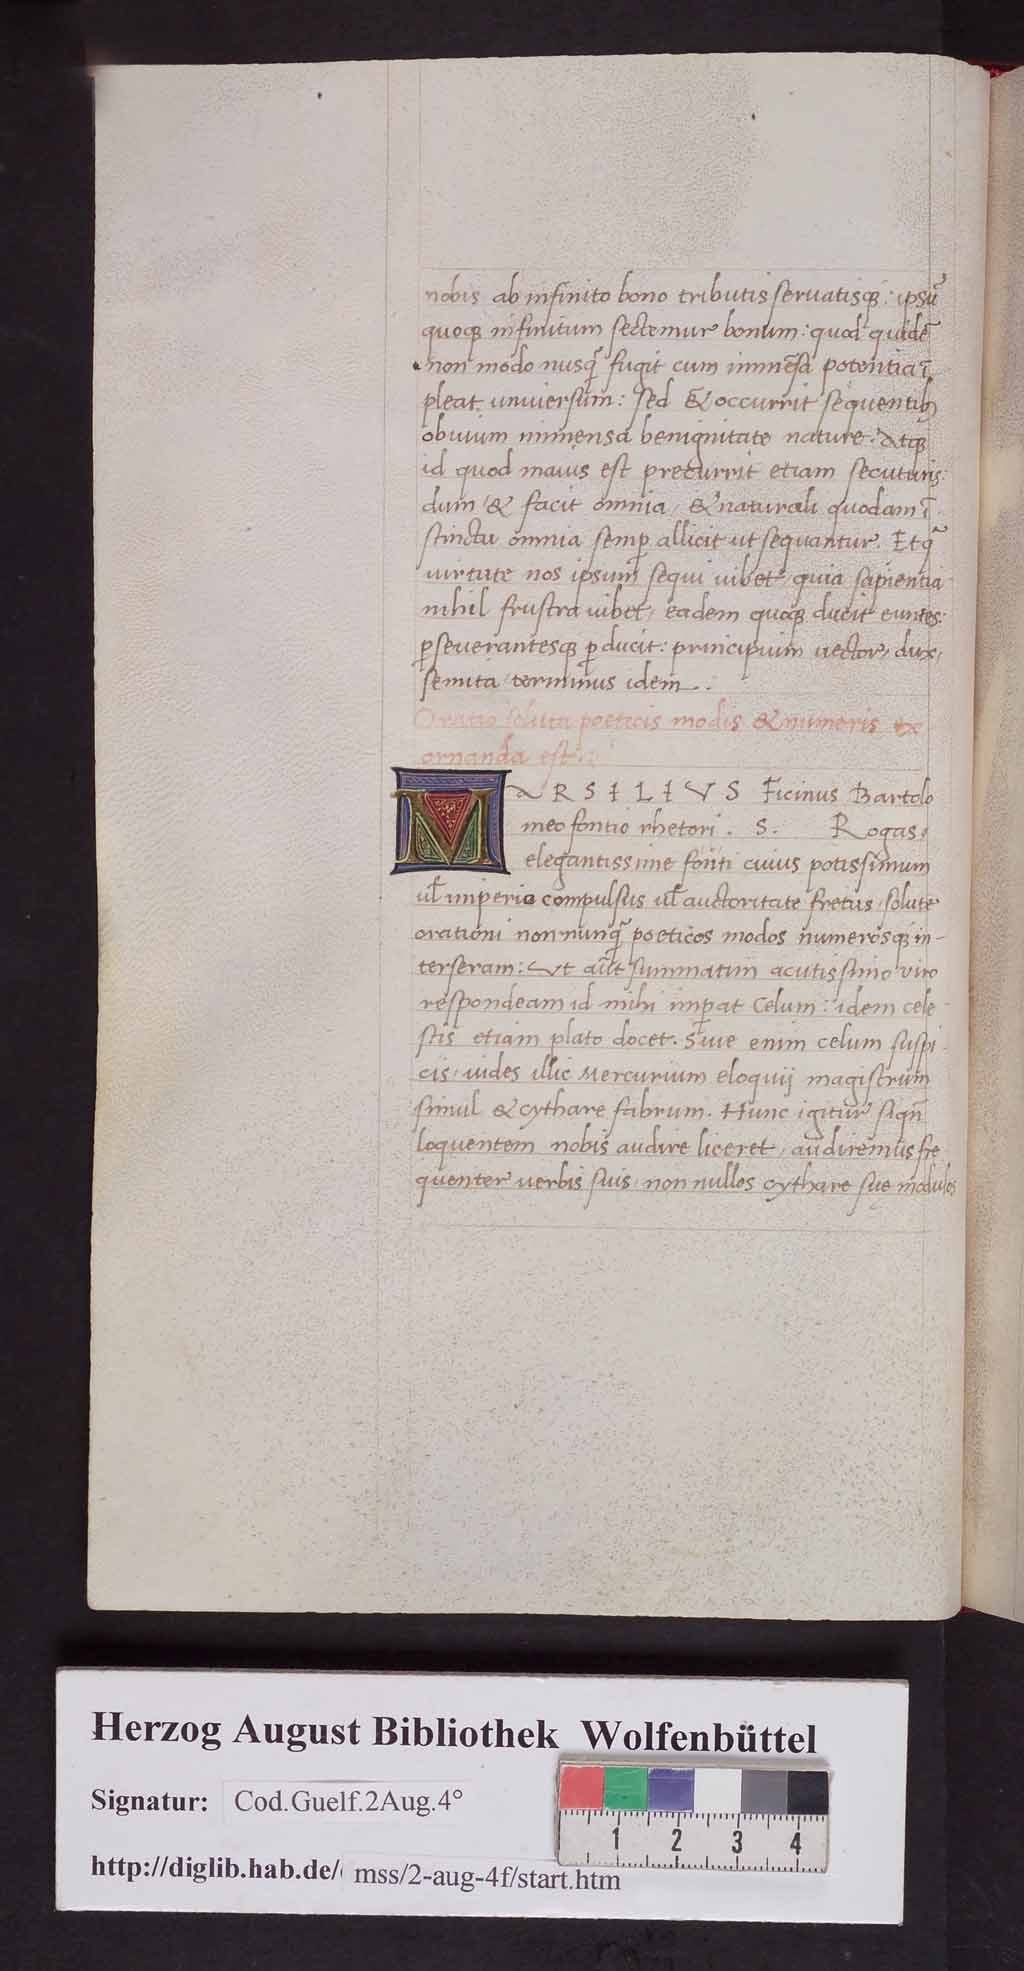 nobis ab infinito bono tributis seruatisqꝫ: ipsū
quoqꝫ infinitum sectemur bonum: quod quidē
non modo nusq̄ fugit cum immēsa potentia ī
pleat uniuersum: sed & occurrit sequentibꝫ
obuium immensa benignitate nature. Atqꝫ
id quod maius est precurrit etiam secuturis:
dum & facit omnia, & naturali quodam ī
stinctu omnia semꝑ allicit ut sequantur. Et q̄
uirtute nos ipsum sequi iubet, quia sapientia
nihil frustra iubet, eadem quoqꝫ ducit euntes:
ꝑseuerantesqꝫ ꝑducit: principium uector, dux,
semita, terminus idem.
Oratio soluta poeticis modis & numeris ex
ornanda est.
MARSILIVS Ficinus Bartolo
meo fontio rhetori. S. Rogas,
elegantissime fonti cuius potissimum
uł imperio compulsus uł auctoritate fretus, solute
orationi nonnunq̄ poeticos modos numerosqꝫ in-
terseram: Vt aūt summatim acutissimo viro
respondeam id mihi imꝑat Celum: idem cele
stis etiam plato docet. Siue enim celum suspi
cis, uides illic Mercurium eloquij magistrum
simul & cythare fabrum. Hunc igitur siqn̄
loquentem nobis audire liceret, audiremus fre
quenter uerbis suis, non nullos cythare suę modulos
Herzog August Bibliothek Wolfenbüttel
Signatur: Cod.Guelf.2Aug.4°
http://diglib.hab.de/ mss/2-aug-4f/start.htm
1 2 3 4